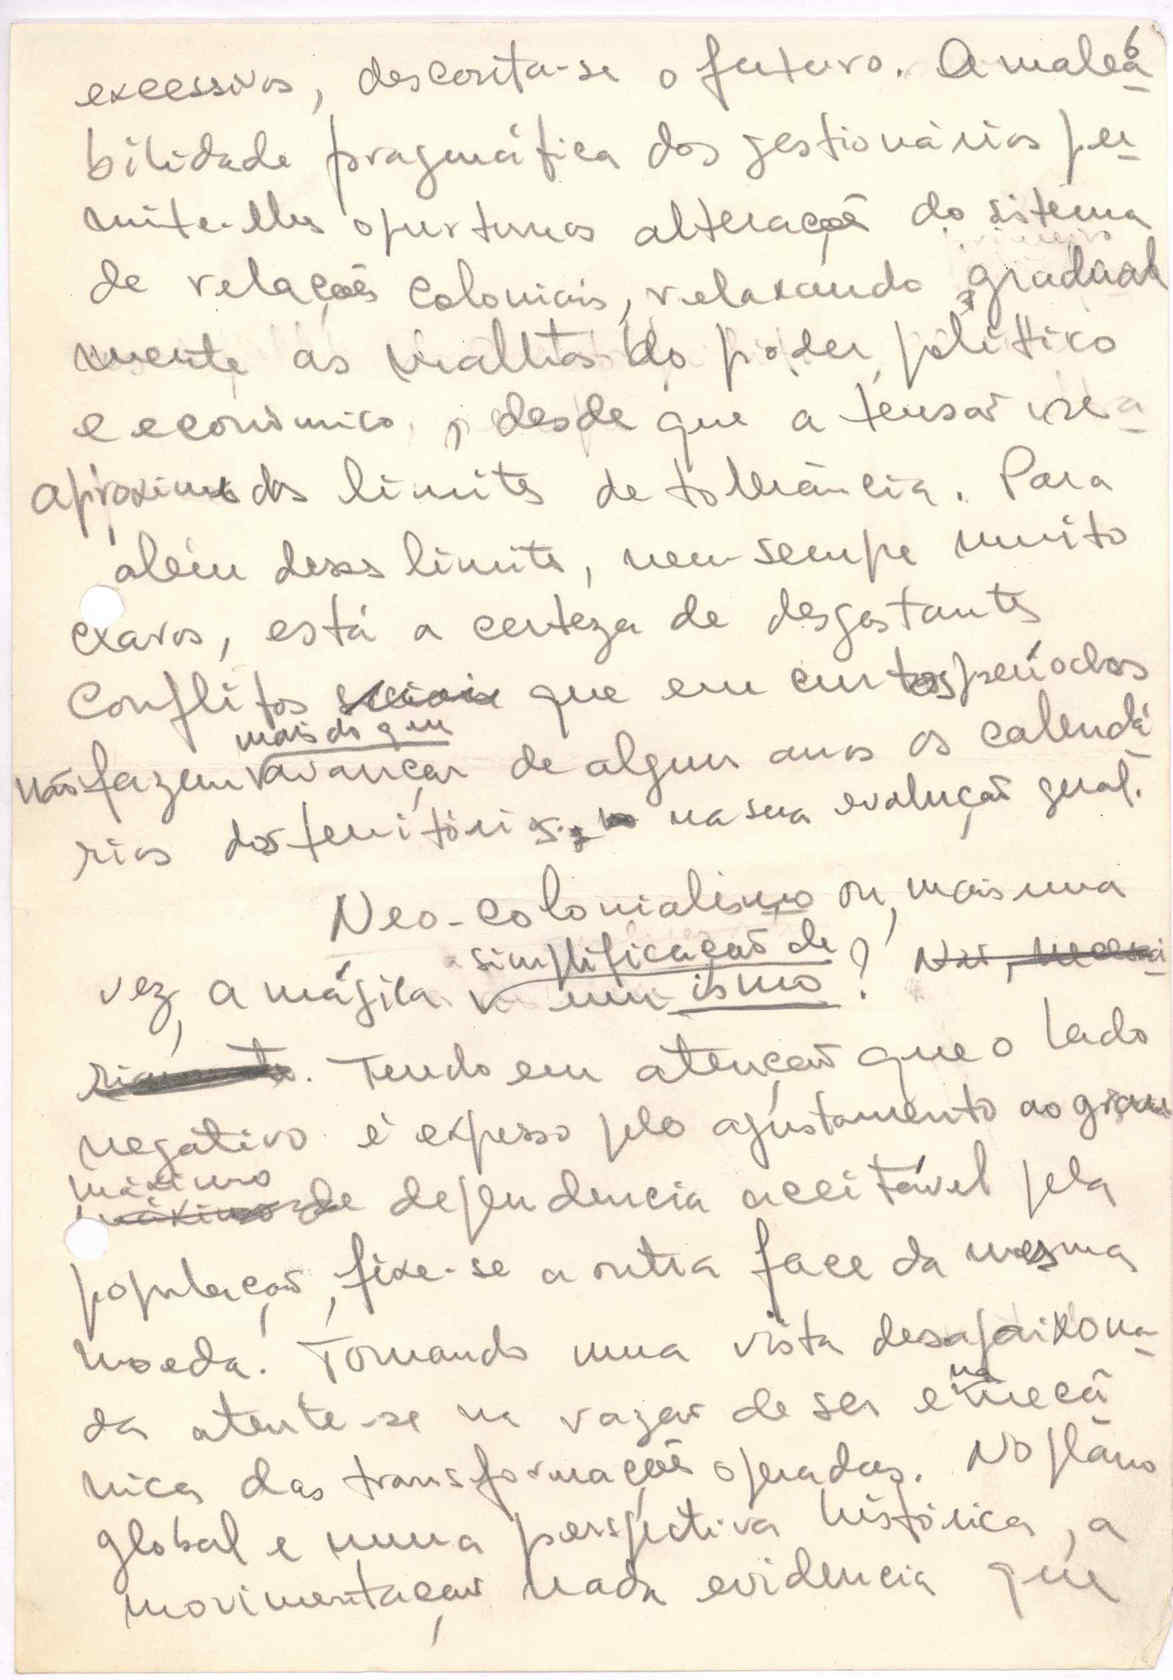 6
excessivos, desconta-se o futuro. A malea-
bilidade pragmática dos gestionários per-
mite-lhes oportunas alterações do sistema
de relações coloniais, relaxando gradual
mente as malhas do poder político
e económico, desde que a tensão se
aproxime dos limites de tolerância. Para
além desses limites, nem sempre muito
claros, está a certeza de desgastantes
conflitos sociais que em curtos períodos
mais do que
não fazem avançar de alguns anos os calendá
rios dos territórios na sua evolução geral.
Neo-colonialismo ou, mais uma
simplificação de
vez, a mágica um ismo? Não, necessa
riamente. Tendo em atenção que o lado
negativo é expresso pelo ajustamento ao grau
máximo
máximo de dependencia aceitável pela
população, fixe-se a outra face da mesma
moeda. Tomando uma vista desapaixona-
na
da atente-se na razão de ser e mecâ
nica das transformações operadas. No plano
global e numa perspectiva histórica, a
movimentação nada evidencia que